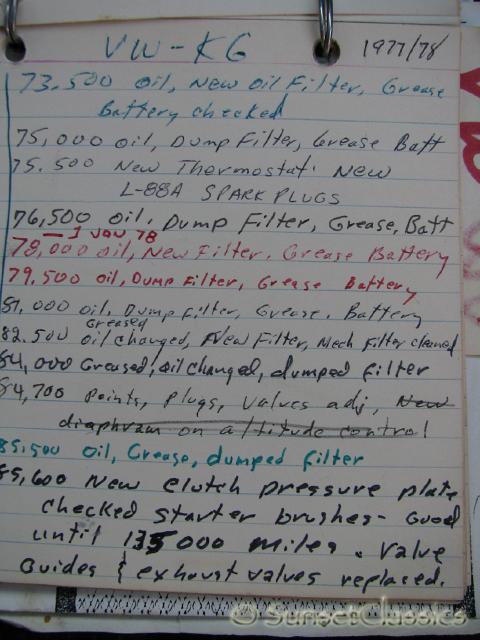 VW-KG 1977/78
73,500 oil, New oil Filter, Grease
Battery checked
75,000 oil, Dump Filter, Grease Batt
75.500 New Thermostat. New
L-88A SPARK PLUGS
76,500 oil. Dump Filter, Grease, Batt
— 1 JAN 78
78,000 oil, New Filter. Grease Battery
79.500 oil, Dump Filter, Grease Battery
81,000 oil. Dump Filter, Grease. Battery
Greased
82.500 oil changed, New Filter, Mech Filter cleaned
84,000 Greased, oil changed, dumped filter
84,700 Points, Plugs, Valves adj, New
diaphram on altitude control
85,500 oil, Grease, dumped filter
85,600 New Clutch pressure plate
checked starter brushes- Good
until 135000 miles. Valve
Guides & exhaust valves replaced.
© SunsetClassics